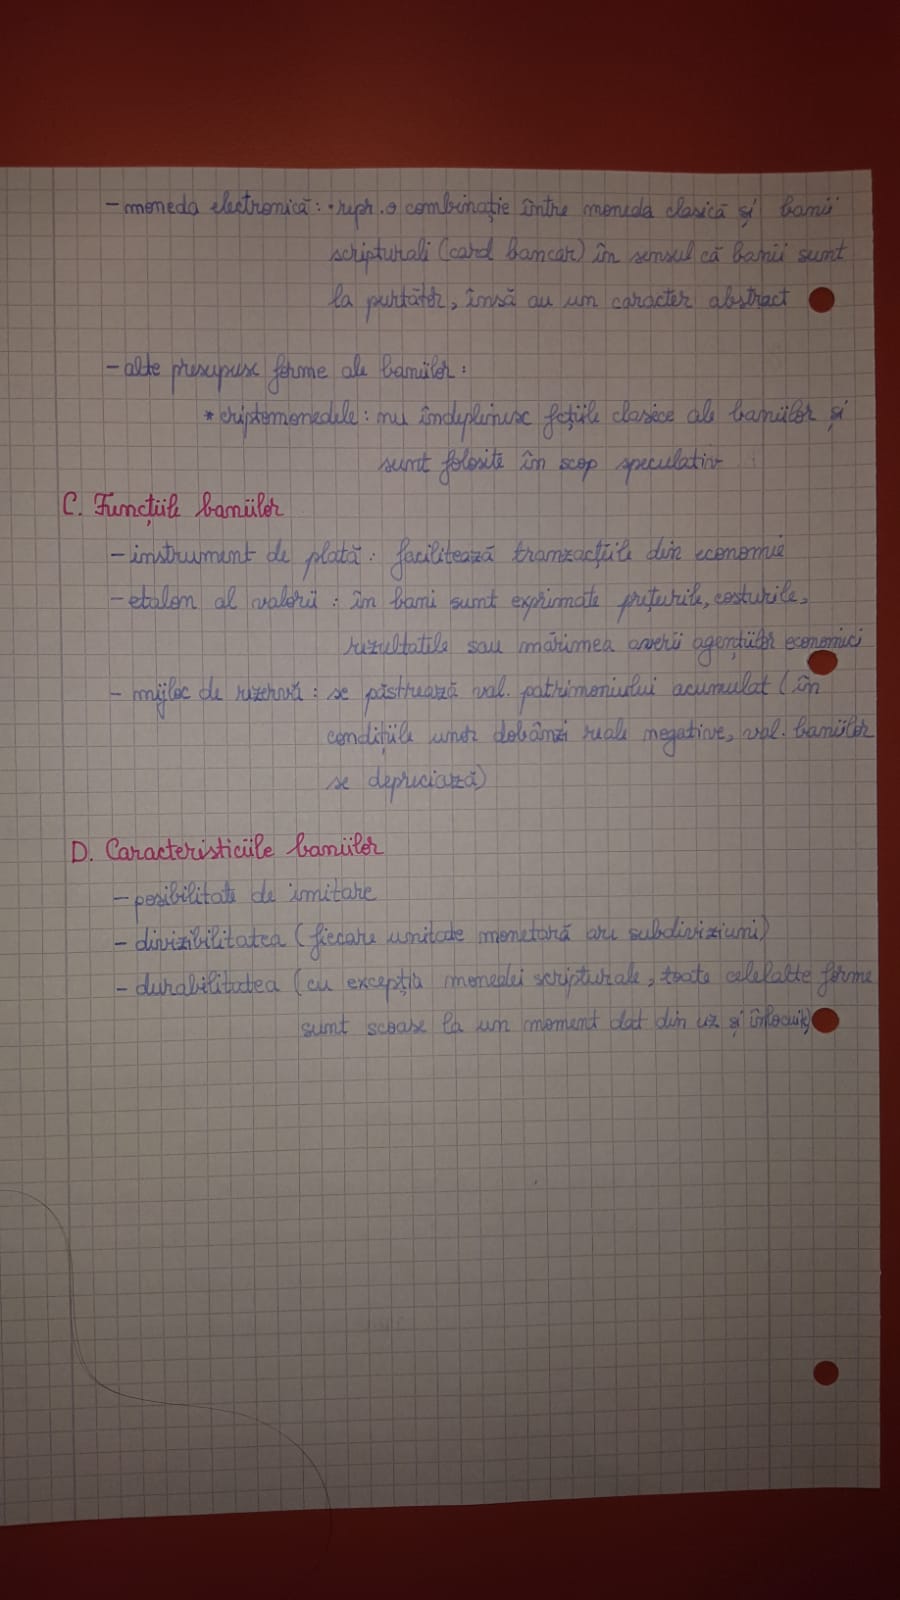 - moneda electronică: • repr. o combinație între moneda clasică și banii
scripturali (card bancar) în sensul că banii sunt
la purtător, însă au un caracter abstract
- alte presupuse forme ale banilor:
* criptomonedele: nu îndeplinesc fcțiile clasice ale banilor și
sunt folosite în scop speculativ
C. Funcțiile banilor
- instrument de plată: facilitează tranzacțiile din economie
- etalon al valorii: în bani sunt exprimate prețurile, costurile,
rezultatele sau mărimea averii agenților economici
- mijloc de rezervă: se păstrează val. patrimoniului acumulat (în
condițiile unor dobânzi reale negative, val. banilor
se depreciază)
D. Caracteristicile banilor
- posibilitate de imitare
- divizibilitatea (fiecare unitate monetară are subdiviziuni)
- durabilitatea (cu excepția monedei scripturale, toate celelalte forme
sunt scoase la un moment dat din uz și înlocuite)